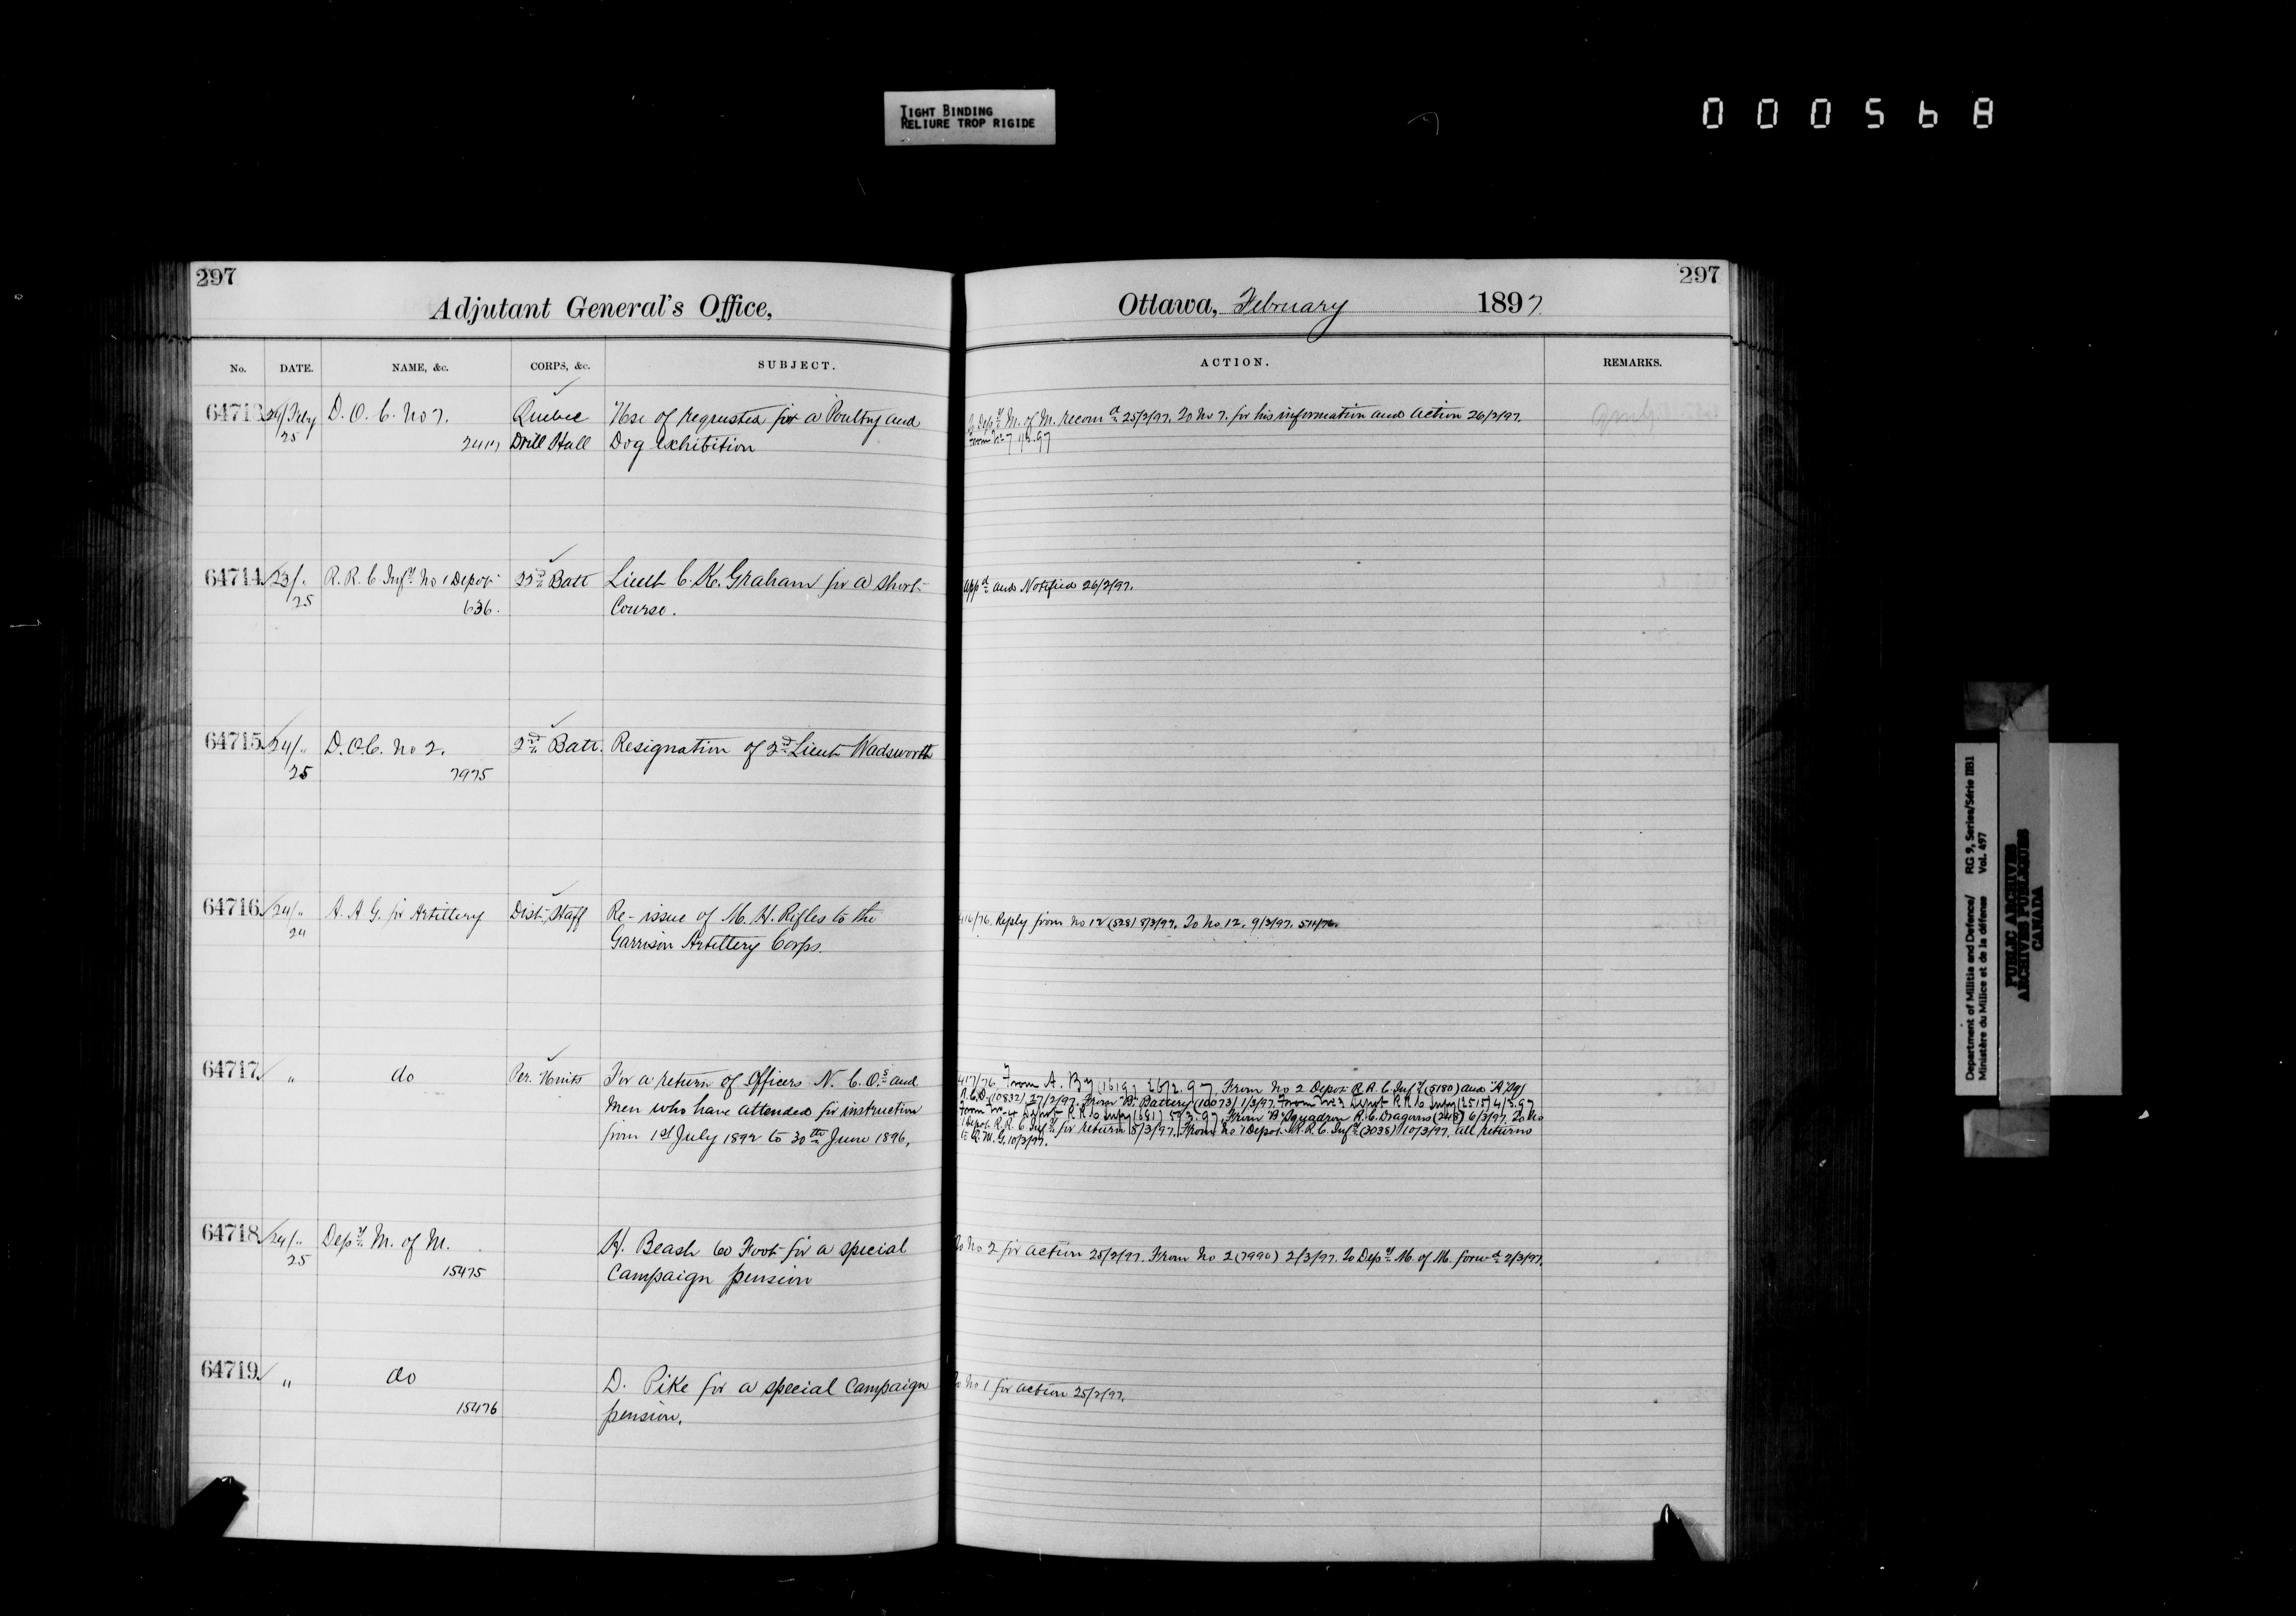 TIGHT BINDING
RELIURE TROP RIGIDE
000568
297
297
Adjutant General's Office,
Ottawa, February 1897.
No. DATE. NAME, &c. CORPS, &c. SUBJECT. ACTION. REMARKS.
64713 24/Feby D. O. C. No 7. Quebec Use of requested for a Poultry and
25 Drill Hall Dog exhibition
To Depy M. of M. recomd 25/2/97. To No 7. for his information and action 26/2/97.
From No 7
64714 23/. R. R. C. Infy No 1 Depot 22nd Batt Lieut C. K. Graham for a short
25 636. Course.
Appd and Notified 26/2/97.
64715 24/.. D.O.C. No 2. 2nd Batt. Resignation of 2nd Lieut Wadsworth
25 7975
64716 24/.. A. A. G. for Artillery Dist. Staff Re-issue of M. H. Rifles to the
24 Garrison Artillery Corps.
416/76. Reply from No 12 (528) 8/3/97. To No 12. 9/3/97. 511/76.
64717 " do Per. Units For a return of Officers N. C. O.s and
Men who have attended for instruction
from 1st July 1892 to 30th June 1896,
417/76. From A. By (1619) 26/2.97 From No 2 Depot R. R. C. Infy (5180) and "A" Sq
R.C.D. (10832) 27/2/97. From "B" Battery (10073) 1/3/97. From No 3 Depot R.R.C. Infy (2515) 4/3.97
From No 4 Depot R.R.C. Infy (681) 5/3.97. From "B" Squadron R. C. Dragoons (248) 6/3/97. To No
1 Depot. R. R. C. Infy for return 8/3/97. From No 1 Depot. R. R. C. Infy (3038) 10/3/97. All returns
to Q. M. G. 10/3/97.
64718 24/.. Depy M. of M. H. Beach 60 Foot for a special
25 15475 Campaign pension
To No 2 for action 25/2/97. From No 2 (7990) 2/3/97. To Depy M. of M. forwd 2/3/97.
64719 " do D. Pike for a special Campaign
15476 pension.
To No 1 for action 25/2/97.
Department of Militia and Defence/ RG 9, Series/Série IIB1
Ministère du Milice et de la défense Vol. 497
PUBLIC ARCHIVES
ARCHIVES PUBLIQUES
CANADA